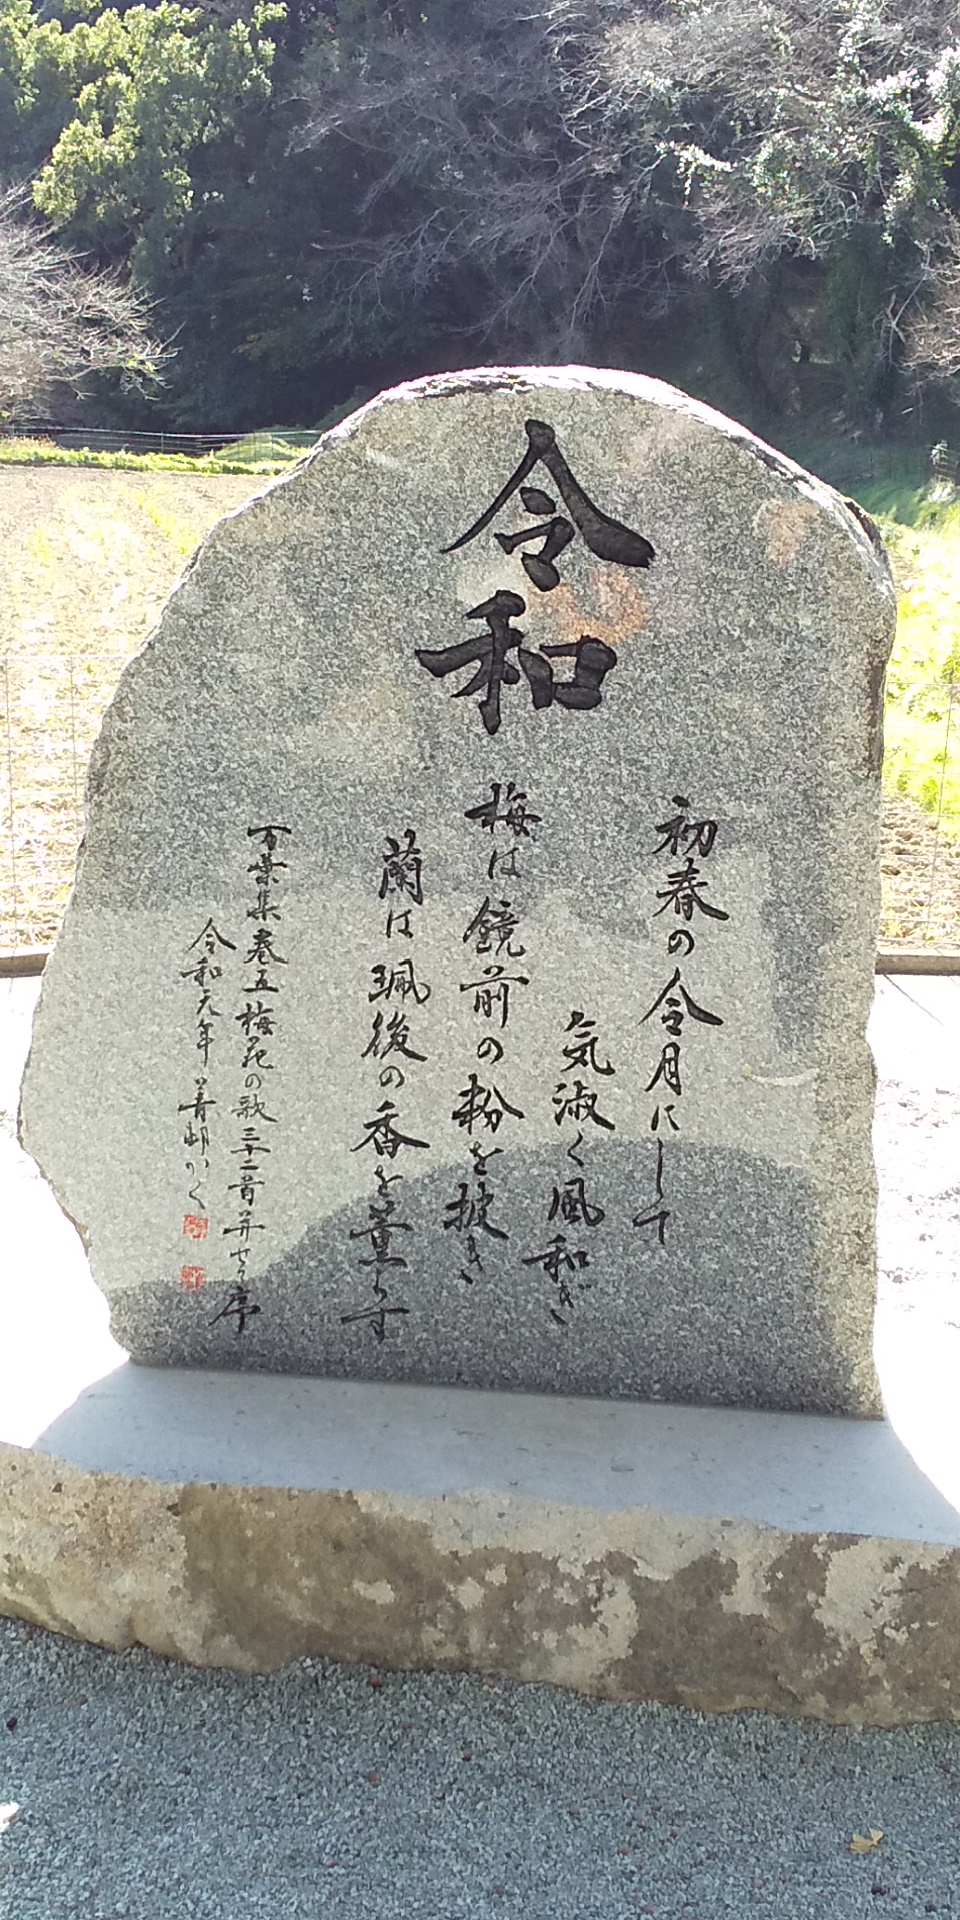 令和
初春の令月にして
気淑く風和ぎ
梅は鏡前の粉を披き
蘭は珮後の香を薫らす
万葉集巻五梅花の歌三十二首并せて序
令和元年 善邨かく